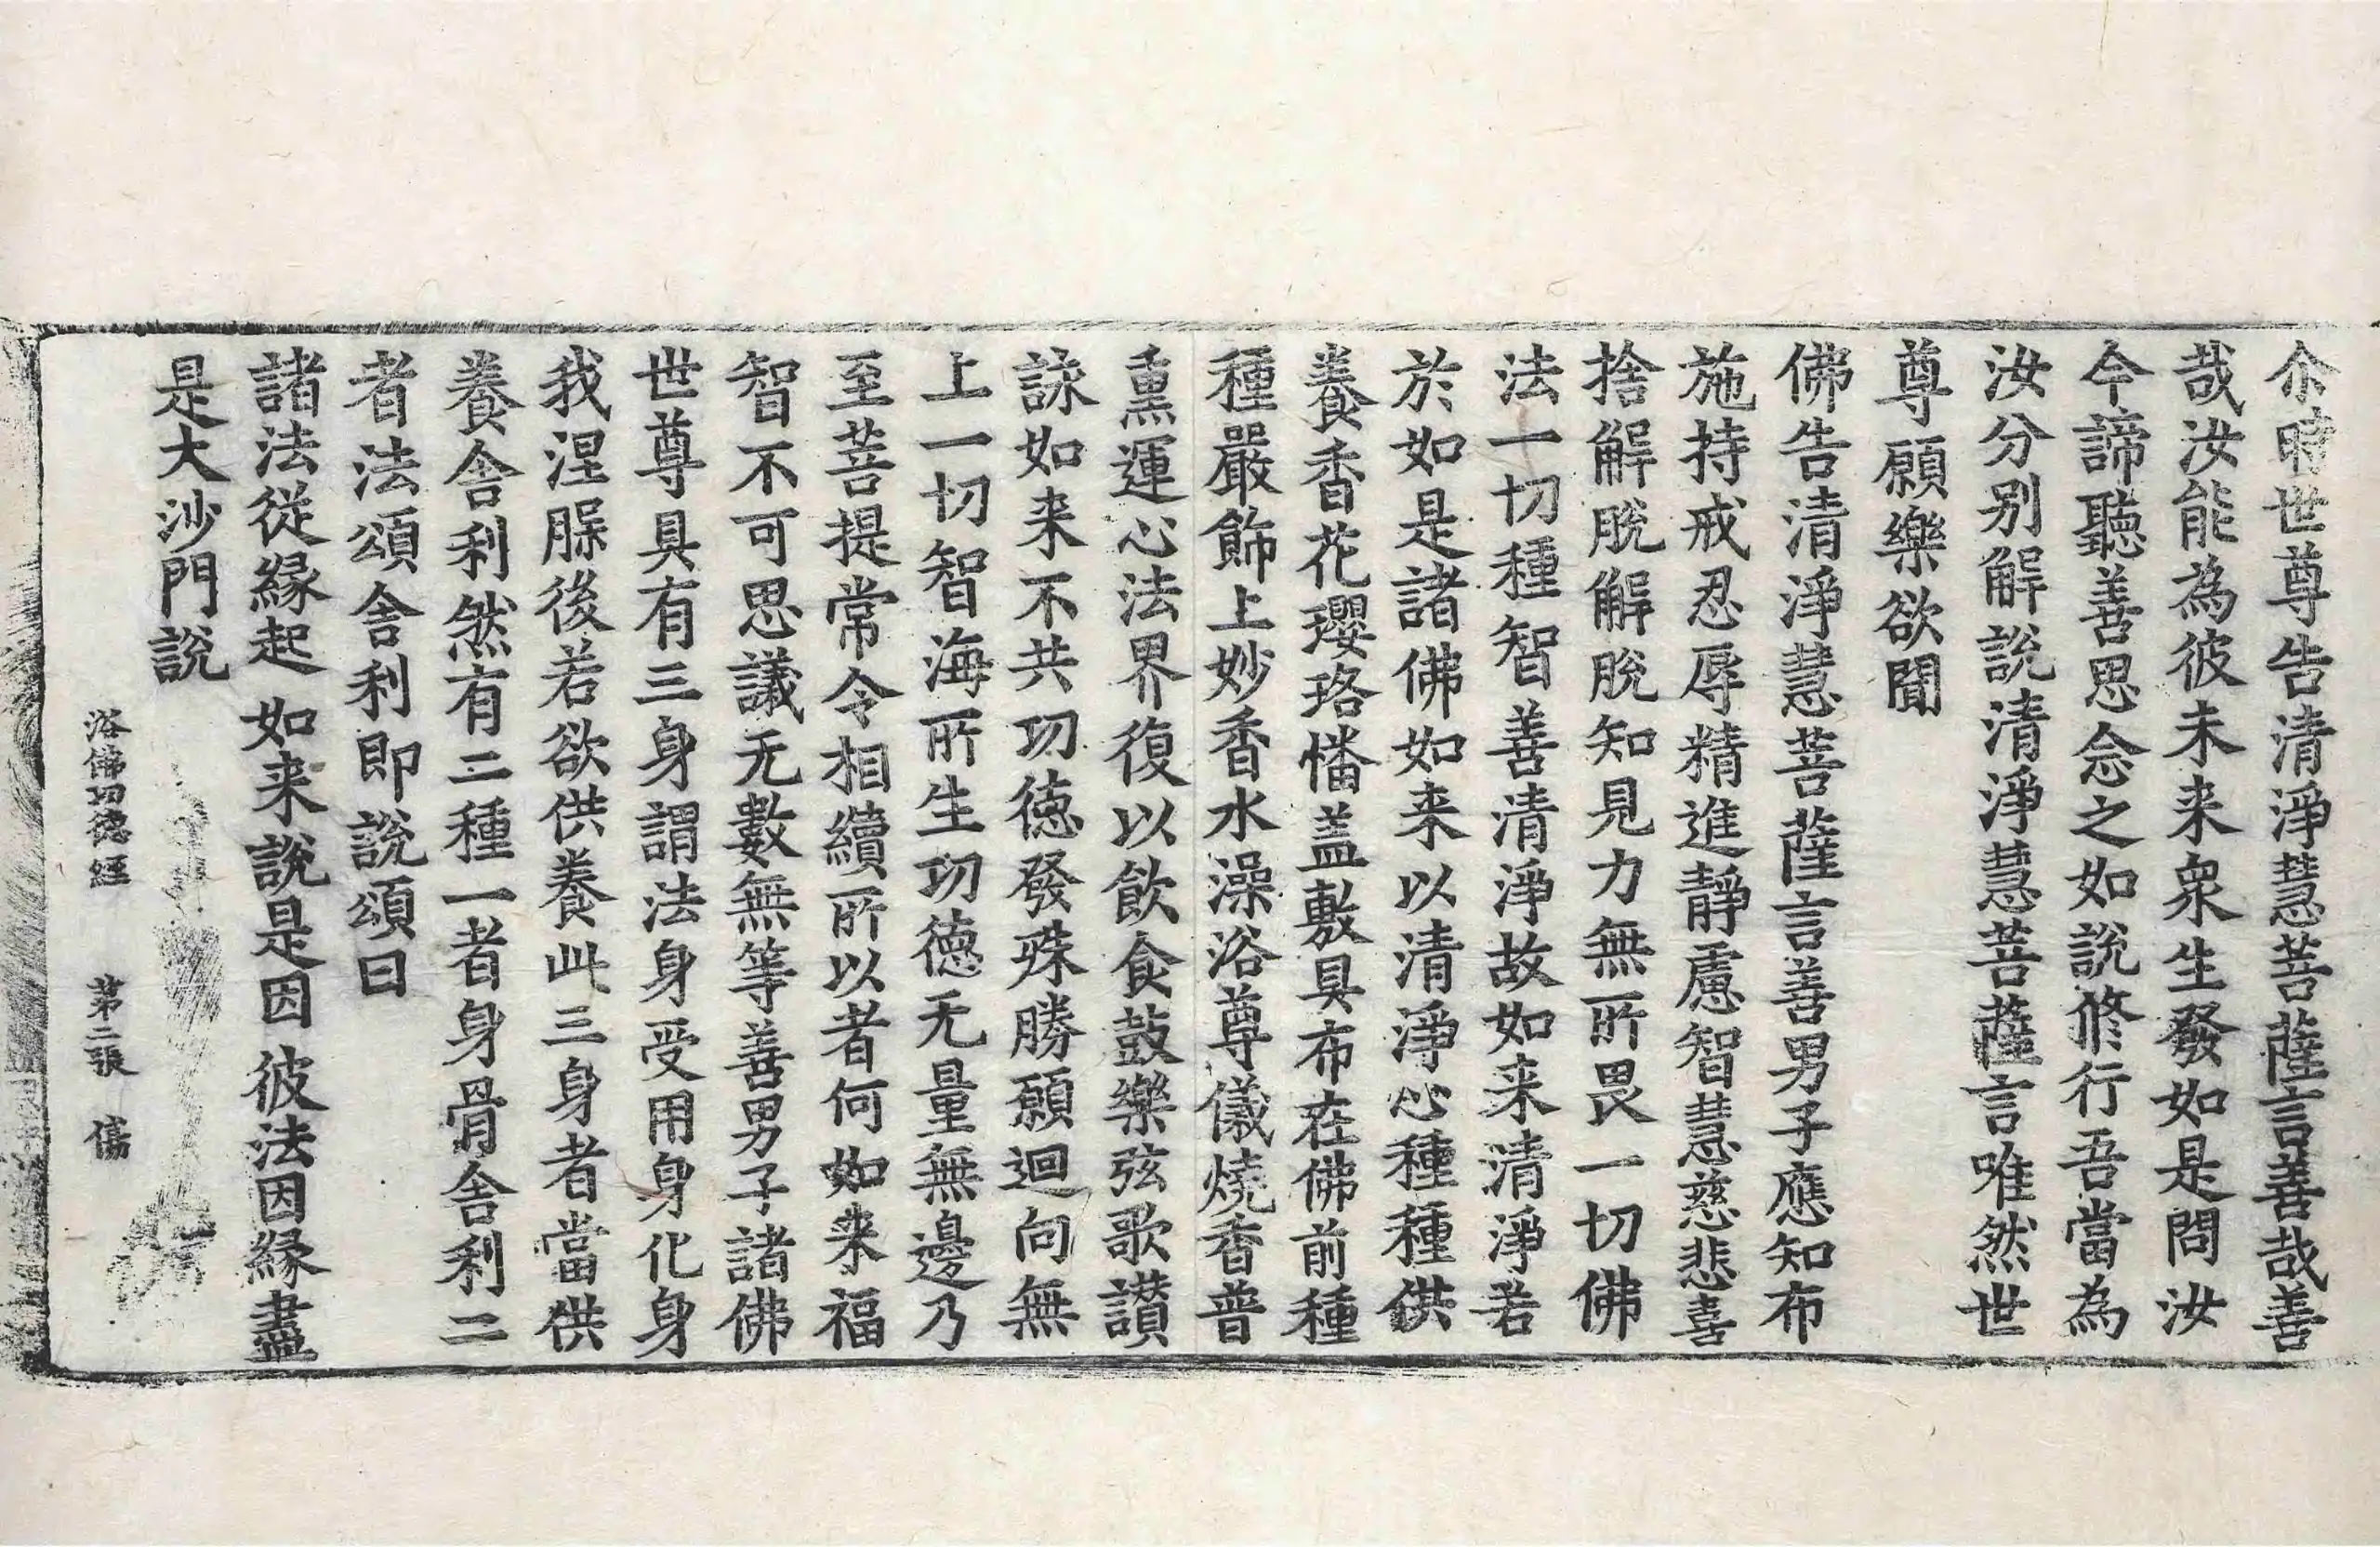 尒時世尊告清淨慧菩薩言善哉善
哉汝能為彼未来衆生發如是問汝
今諦聽善思念之如說修行吾當為
汝分别解說清淨慧菩薩言唯然世
尊願樂欲聞
佛告清淨慧菩薩言善男子應知布
施持戒忍辱精進靜慮智慧慈悲喜
捨解脫解脫知見力無所畏一切佛
法一切種智善清淨故如来清淨若
於如是諸佛如来以清淨心種種供
養香花瓔珞幡盖敷具布在佛前種
種嚴飾上妙香水澡浴尊儀燒香普
熏運心法界復以飲食鼓樂弦歌讃
詠如来不共功徳發殊勝願迴向無
上一切智海所生功徳无量無邊乃
至菩提常令相續所以者何如来福
智不可思議无數無等善男子諸佛
世尊具有三身謂法身受用身化身
我涅脲後若欲供養此三身者當供
養舍利然有二種一者身骨舍利二
者法頌舍利即說頌曰
諸法從緣起 如来說是因 彼法因緣盡
是大沙門說
浴佛功徳經 苐二張 傷